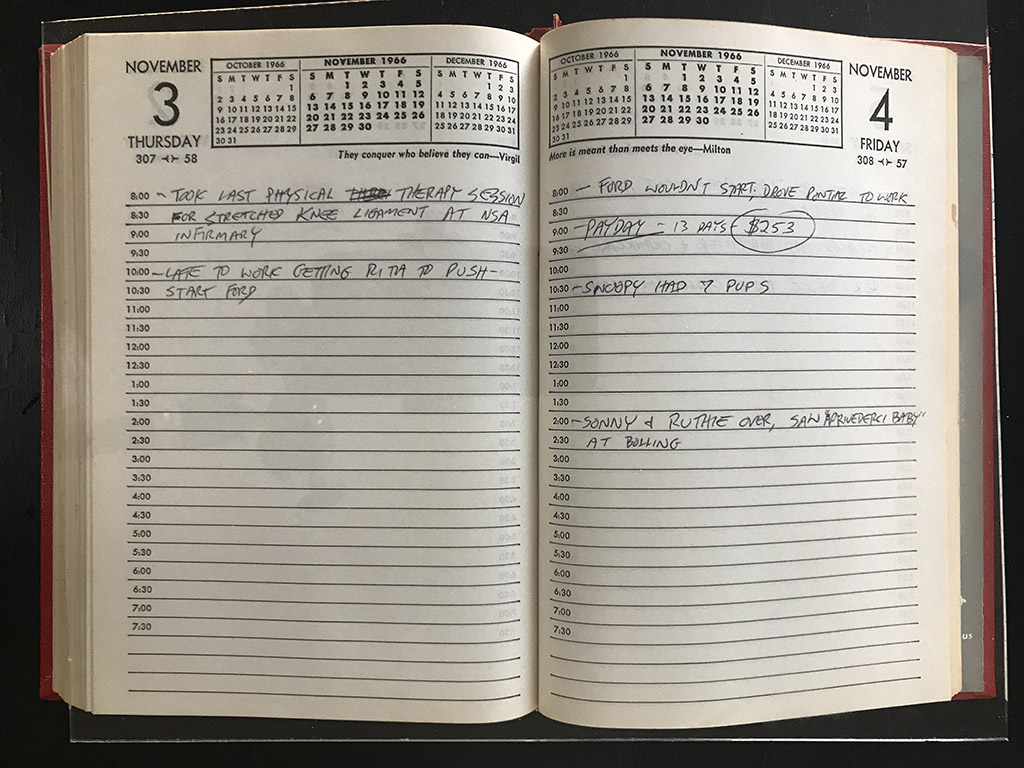 NOVEMBER
3
THURSDAY
307 ⊰⊱ 58
OCTOBER 1966
S M T W T F S
1
2 3 4 5 6 7 8
9 10 11 12 13 14 15
16 17 18 19 20 21 22
23 24 25 26 27 28 29
30 31
NOVEMBER 1966
S M T W T F S
1 2 3 4 5
6 7 8 9 10 11 12
13 14 15 16 17 18 19
20 21 22 23 24 25 26
27 28 29 30
DECEMBER 1966
S M T W T F S
1 2 3
4 5 6 7 8 9 10
11 12 13 14 15 16 17
18 19 20 21 22 23 24
25 26 27 28 29 30 31
They conquer who believe they can—Virgil
8:00 - TOOK LAST PHYSICAL THERAPY SESSION
8:30 FOR STRETCHED KNEE LIGAMENT AT NSA
9:00 INFIRMARY
9:30
10:00 - LATE TO WORK GETTING RITA TO PUSH-
10:30 START FORD
11:00
11:30
12:00
12:30
1:00
1:30
2:00
2:30
3:00
3:30
4:00
4:30
5:00
5:30
6:00
6:30
7:00
7:30
OCTOBER 1966
S M T W T F S
1
2 3 4 5 6 7 8
9 10 11 12 13 14 15
16 17 18 19 20 21 22
23 24 25 26 27 28 29
30 31
NOVEMBER 1966
S M T W T F S
1 2 3 4 5
6 7 8 9 10 11 12
13 14 15 16 17 18 19
20 21 22 23 24 25 26
27 28 29 30
DECEMBER 1966
S M T W T F S
1 2 3
4 5 6 7 8 9 10
11 12 13 14 15 16 17
18 19 20 21 22 23 24
25 26 27 28 29 30 31
NOVEMBER
4
FRIDAY
308 ⊰⊱ 57
More is meant than meets the eye—Milton
8:00 - FORD WOULDN'T START, DROVE PONTIAC TO WORK
8:30
9:00 - PAYDAY = 13 DAYS = $253
9:30
10:00
10:30 - SNOOPY HAD 7 PUPS
11:00
11:30
12:00
12:30
1:00
1:30
2:00 - SONNY & RUTHIE OVER, SAW "ARRIVEDERCI BABY"
2:30 AT BOLLING
3:00
3:30
4:00
4:30
5:00
5:30
6:00
6:30
7:00
7:30
us